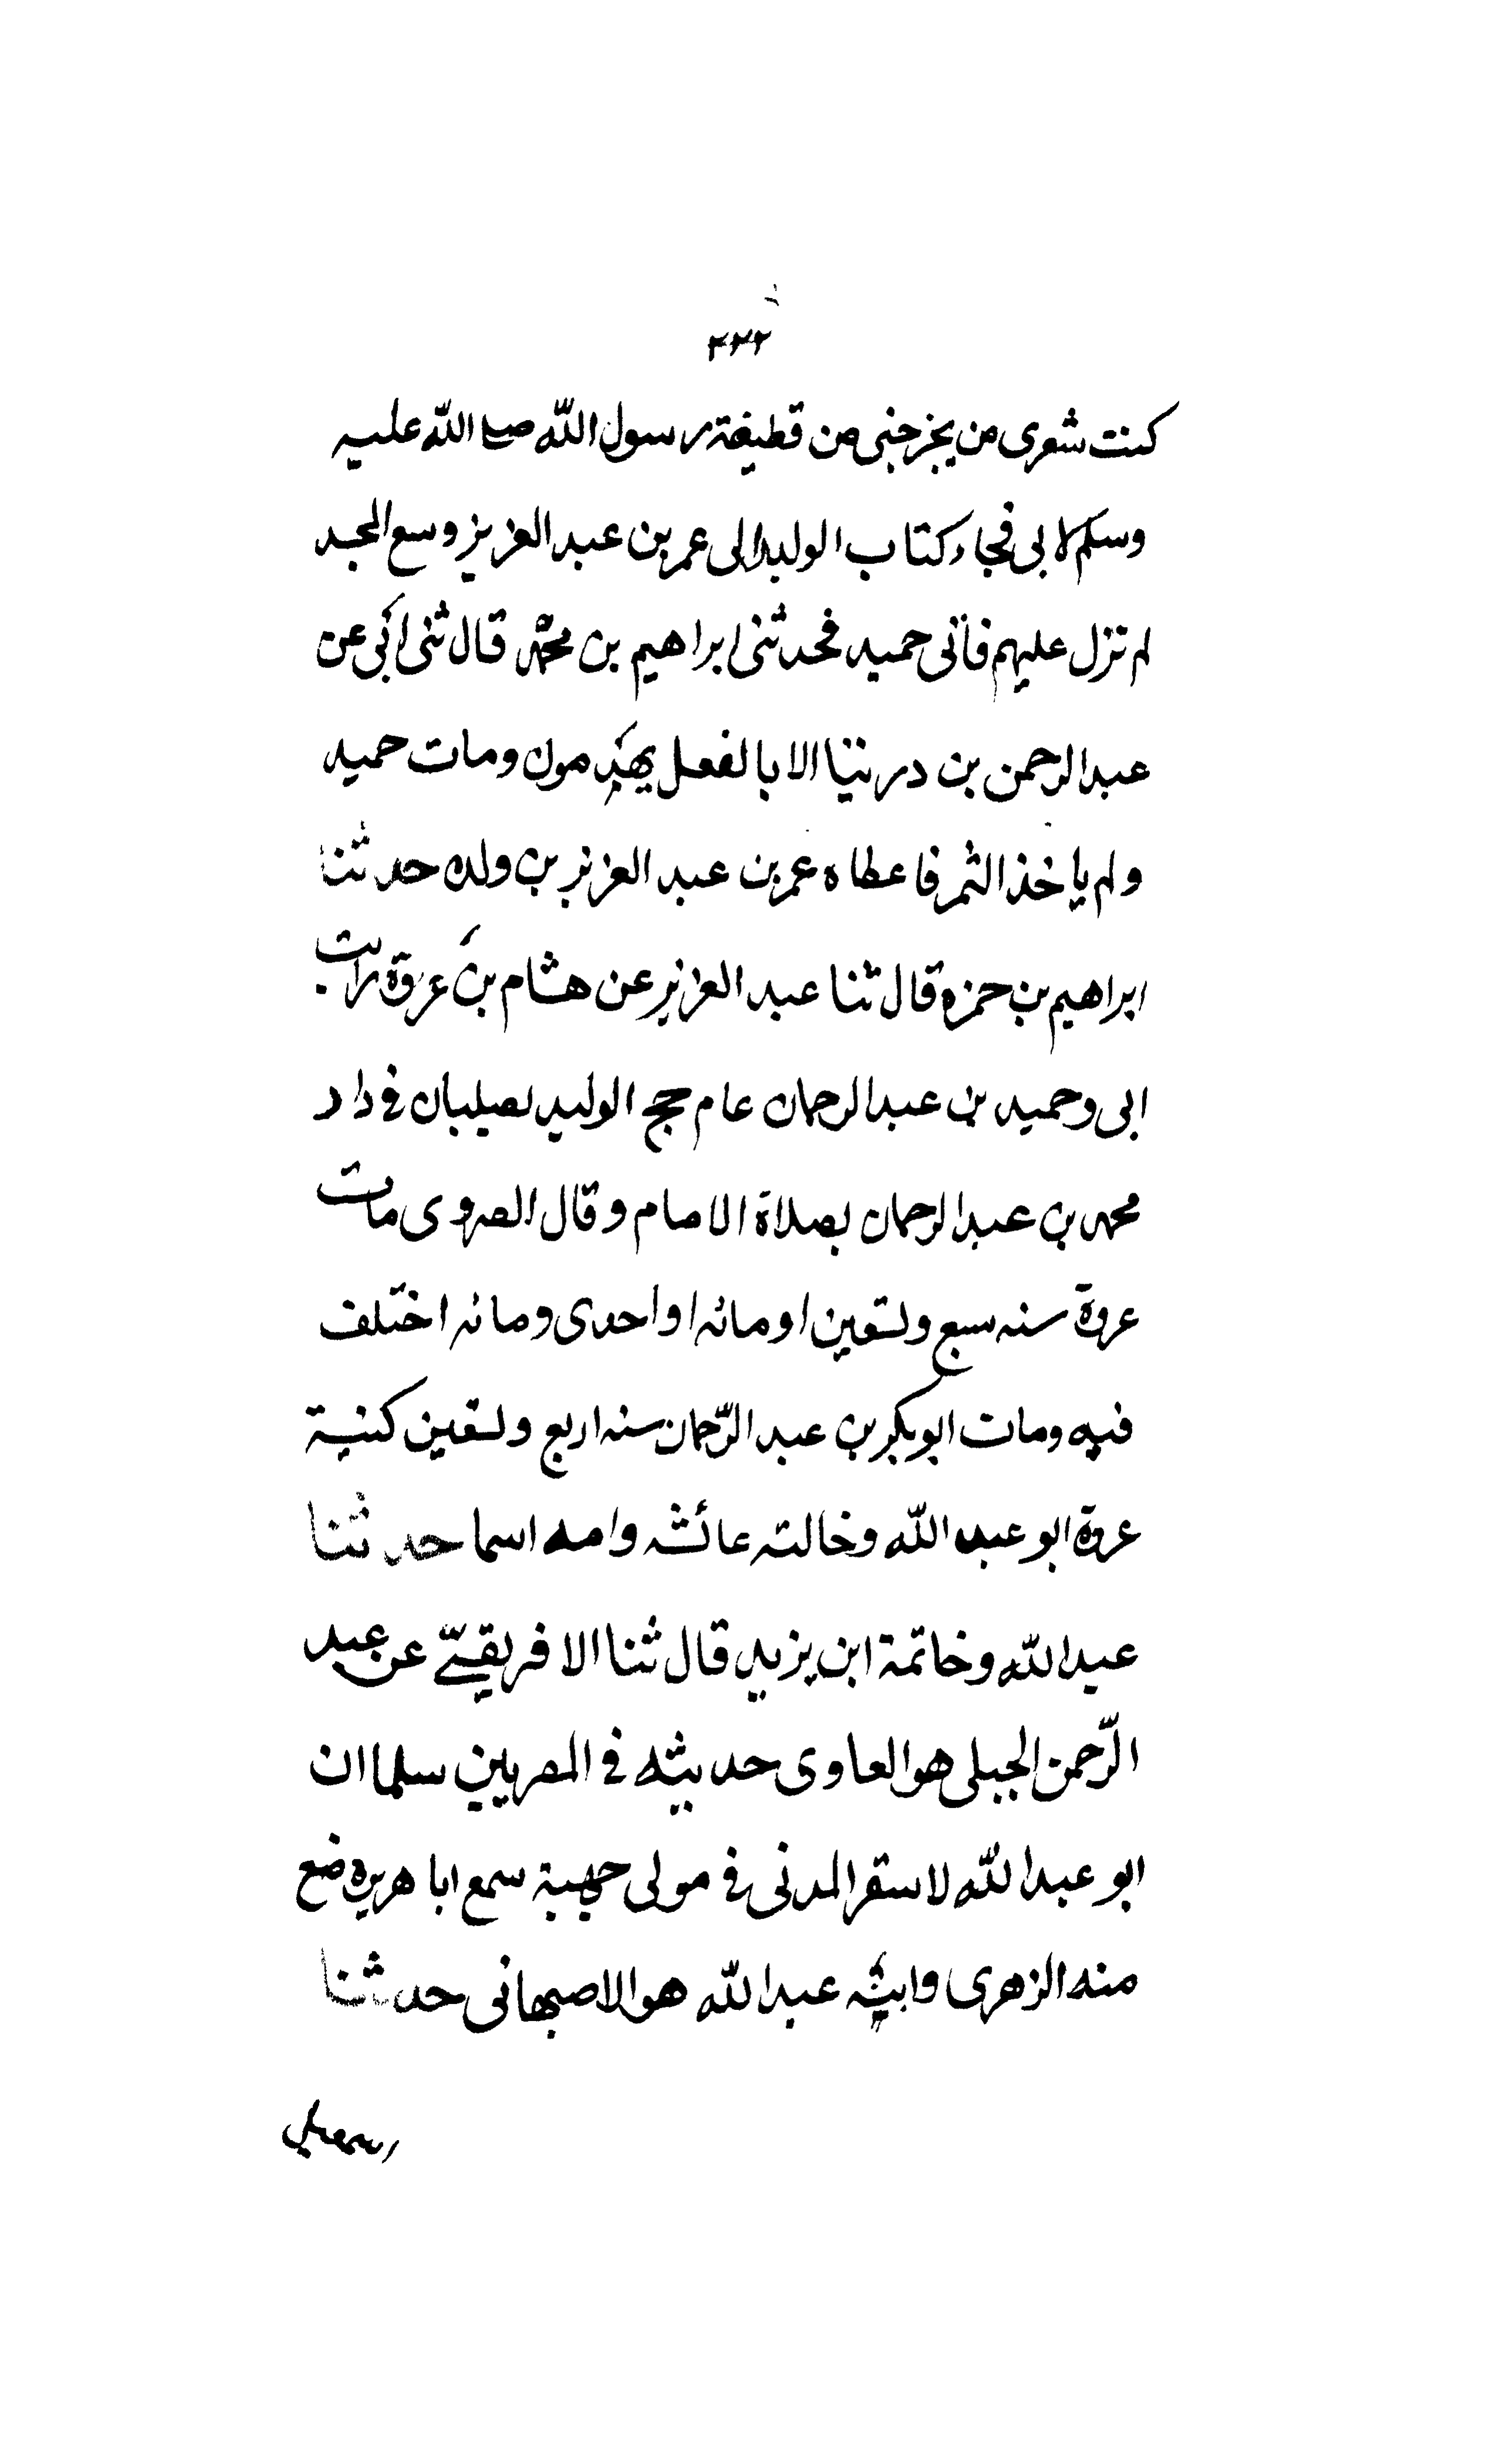 ٢٢٢
كنت شعرى من يخرجنى من قطيفة رسول الله صلى الله عليه
وسلم لابى فجاء كتاب الوليد الى عمر بن عبد العزيز وسع المجد
لم تزل عليهم فأتى حميد فحدثنى ابراهيم بن محمد قال ثنى ابى عن
عبد الرحمن بن الا بالفعل ومات حميد
ولم ياخذ الثمر فاعطاه عمر بن عبد العزيز بن ولده حدثنا
ابراهيم بن حمزه قال ثنا عبد العزيز عن هشام بن عروة رايت
ابى وحميد بن عبد الرحمان عام حج الوليد يصليان فى داد
محمد بن عبد الرحمان بصلاة الامام وقال الهروى مات
عروة سنه سبع وتسعين او مائه او احدى ومائه اختلف
فيه ومات ابو بكر بن عبد الرّحمان سنه اربع وتسعين كنية
عروة ابو عبد الله وخالته عائشه وامه اسما حدثنا
عبد الله وخاتمة ابن يزيد قال ثنا الافريقىّ عن عبد
الرّحمن الجبلى هو العاوى حديثه فى المصريين سلما ان
ابو عبد الله لاسقر المدنى فى مولى جهينة سمع ابا هريرة ضع
منه الزهرى وابنه عبد الله هو الاصبهانى حدثنا